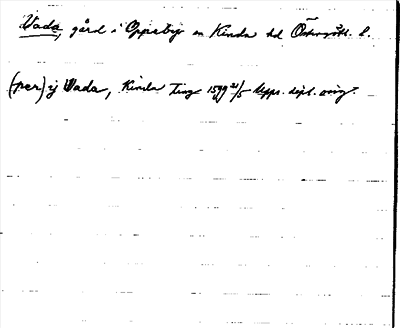 Vada, gård i Oppeby sn Kinda hd Östergötl. l.
(per) ij Vada, Kinda ting 1599 21/5 Upps. dipl. orig.